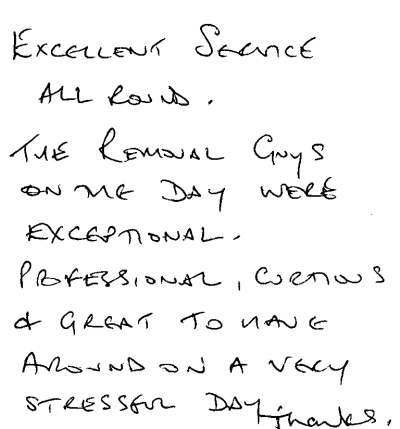 EXCELLENT SERVICE
ALL ROUND.
THE REMOVAL GUYS
ON THE DAY WERE
EXCEPTIONAL.
PROFESSIONAL, CURTIOUS
& GREAT TO HAVE
AROUND ON A VERY
STRESSFUL DAY thanks.